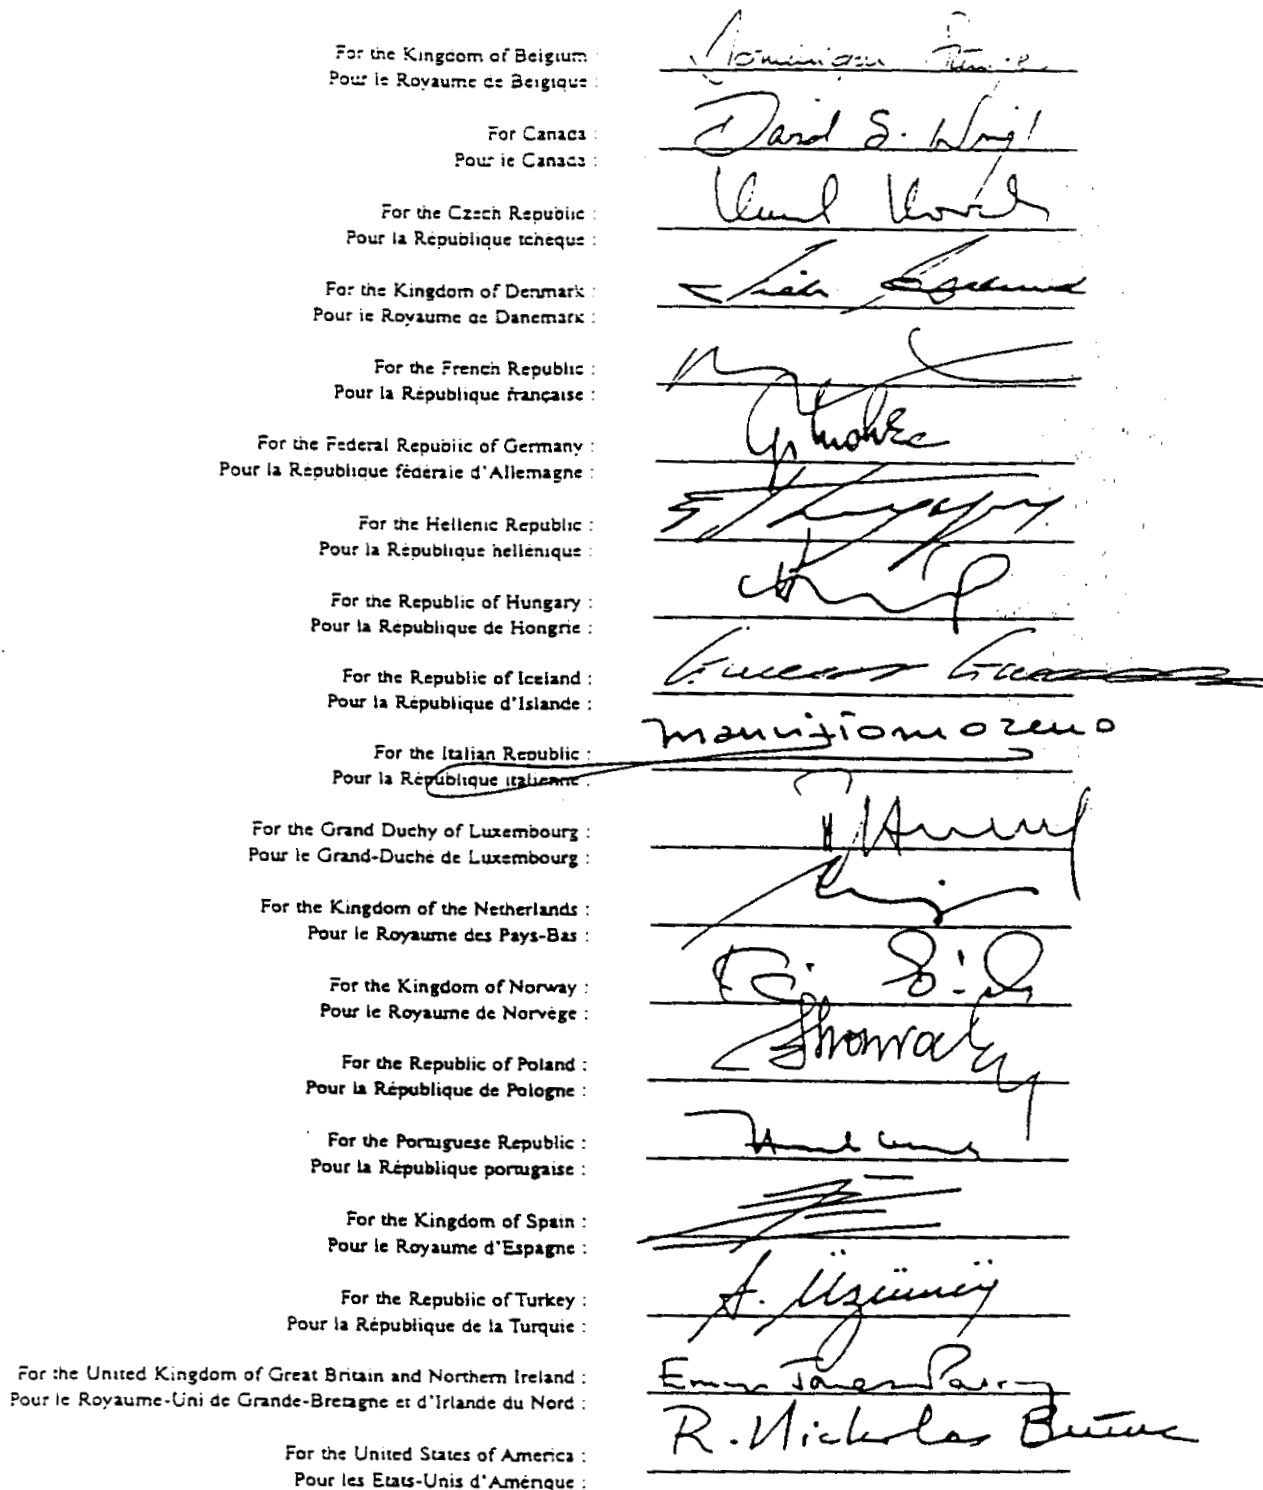 For the Kingdom of Belgium :
Pour le Royaume de Belgique :
For Canada : David S. Wright
Pour le Canada :
For the Czech Republic :
Pour la République tchèque :
For the Kingdom of Denmark :
Pour le Royaume de Danemark :
For the French Republic :
Pour la République française :
For the Federal Republic of Germany :
Pour la République fédérale d'Allemagne :
For the Hellenic Republic :
Pour la République hellénique :
For the Republic of Hungary :
Pour la République de Hongrie :
For the Republic of Iceland :
Pour la République d'Islande :
maurizio moreno
For the Italian Republic :
Pour la République italienne :
For the Grand Duchy of Luxembourg :
Pour le Grand-Duché de Luxembourg :
For the Kingdom of the Netherlands :
Pour le Royaume des Pays-Bas :
For the Kingdom of Norway :
Pour le Royaume de Norvège :
For the Republic of Poland :
Pour la République de Pologne :
For the Portuguese Republic :
Pour la République portugaise :
For the Kingdom of Spain :
Pour le Royaume d'Espagne :
For the Republic of Turkey : A. Üzümcü
Pour la République de la Turquie :
For the United Kingdom of Great Britain and Northern Ireland : Emyr Jones Parry
Pour le Royaume-Uni de Grande-Bretagne et d'Irlande du Nord :
R. Nicholas Burns
For the United States of America :
Pour les Etats-Unis d'Amérique :